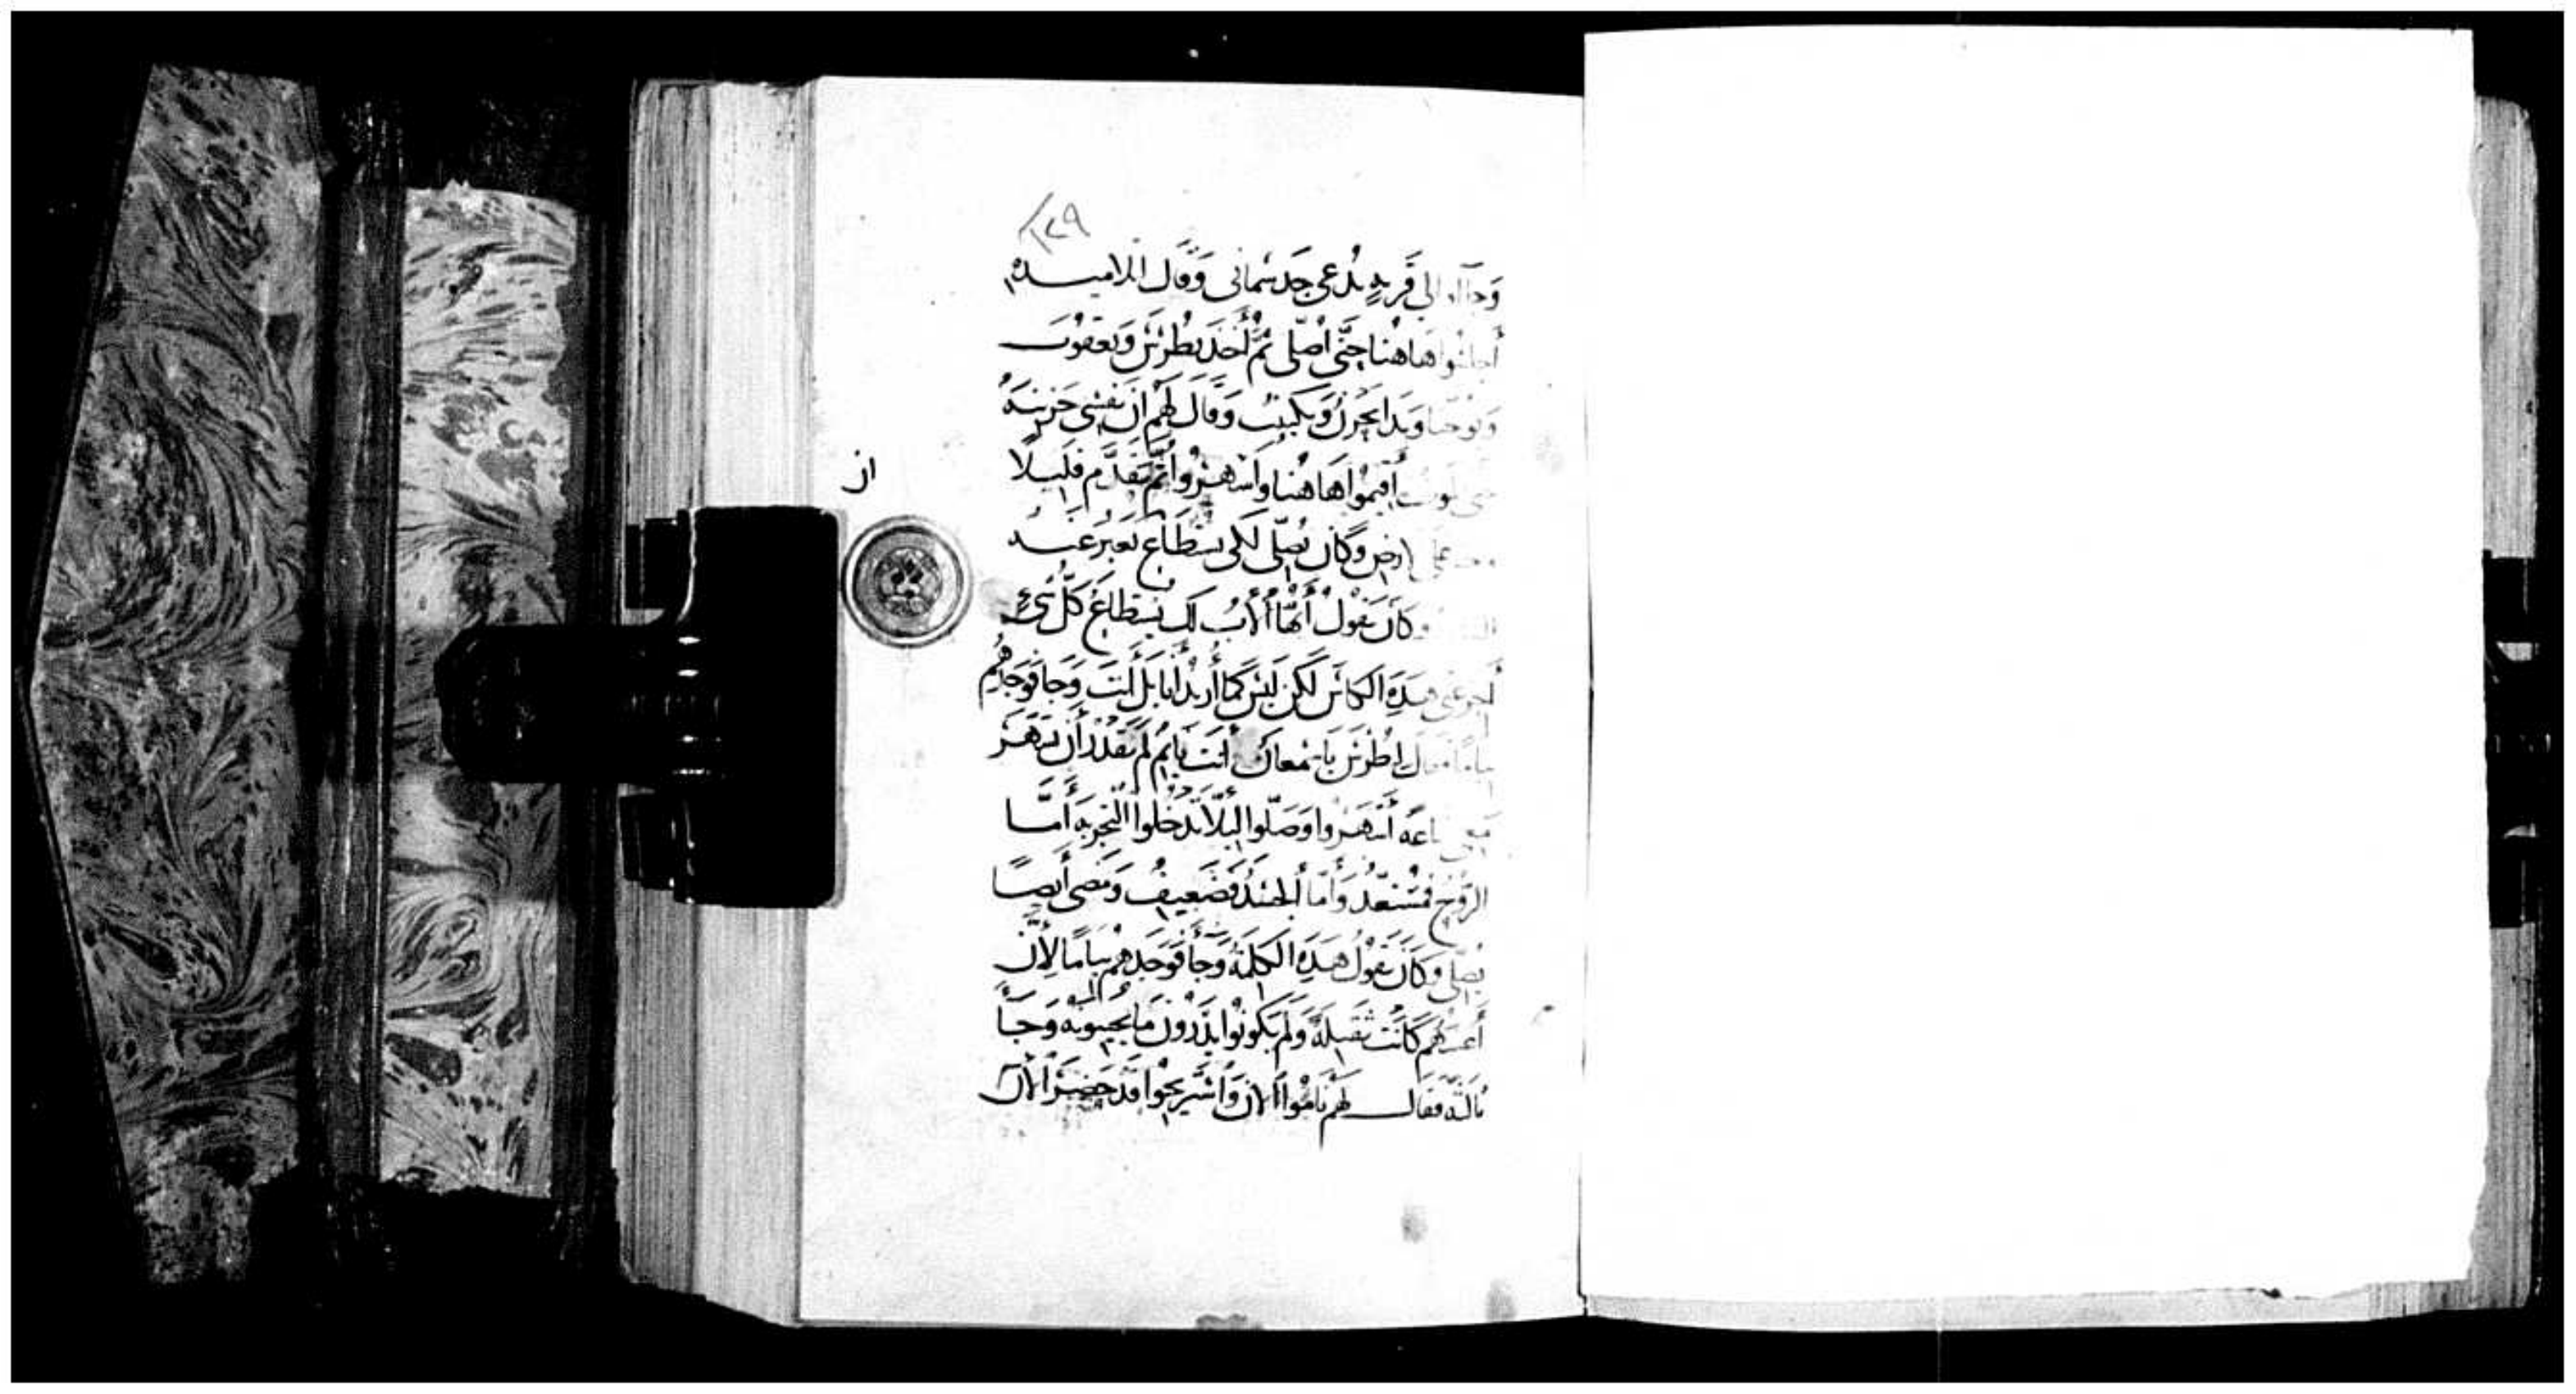 ١٤٩
وجاآ الي قرية يدعي جدسماني وقال لتلاميده
أجلسوا هاهنا حتي اصلي ثم أخذ بطرس ويعقوب
ويوحنا وبدا يحزن ويكتيب وقال لهم ان نفسي حزينه
حتي الموت أقيموا هاهنا واسهروا ثم تقدم قليلا
از
علي الارض وكان يصلي لكي يستطاع تعبر عنه
وكان يقول أيها ألأب لك يستطاع كل شيء
أجز عني هذه الكاس لكن ليس كما أريد أنا بل أنت وجا فوجدهم
نياما فقال لبطرس يا سمعان أنت نايم لم تقدر أن تسهر
معي ساعه أسهروا وصلوا ليلا تدخلوا التجربه أما
الروح فمستعد وأما ألجسد فضعيف ومضي أيضا
يصلي وكان يقول هده الكلمة وجا فوجدهم نياما لأن
أعينهم كانت ثقيلة ولم يكونوا يدرون ما يجيبونه وجا
ثالثه فقال لهم ناموا ألان وأستريحوا قد حضر ألان